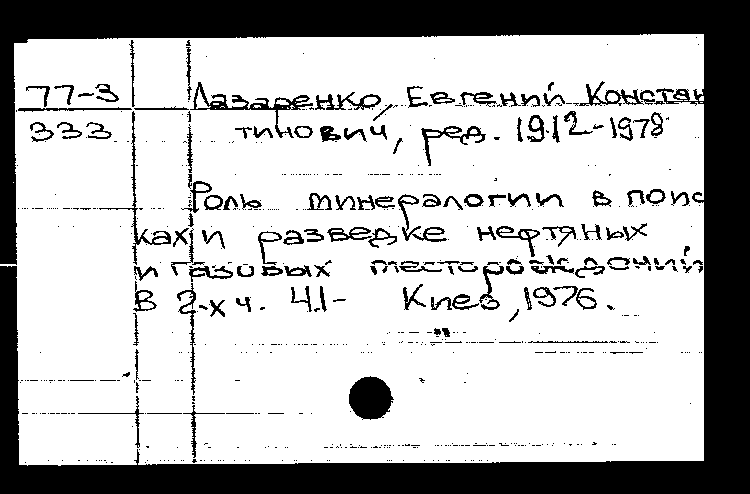 77-3 Лазаренко, Евгений Констан
333 тинович, ред. 1912-1978
Роль минералогии в поис
ках и разведке нефтяных
и газовых месторождений
В 2-х ч. Ч.1- Киев, 1976.
"